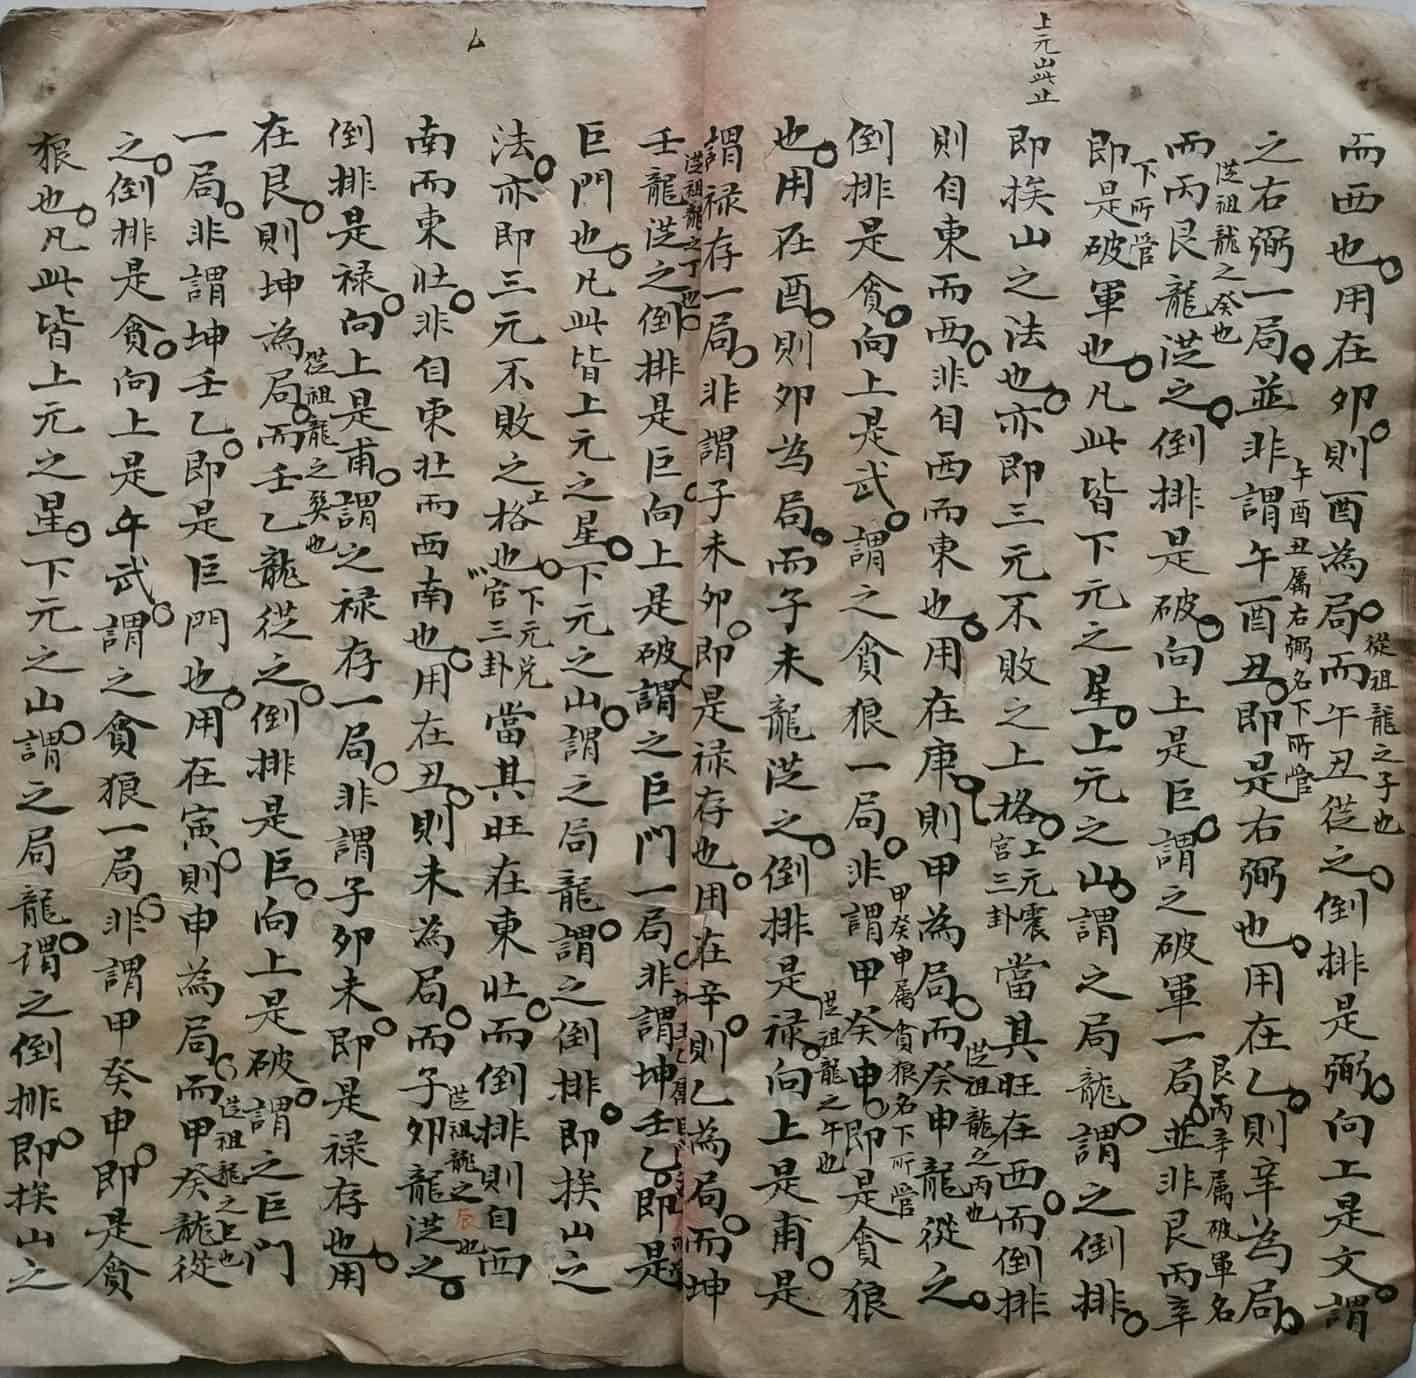 上元山此止
而西也用在夘則酉為局而午丑從之倒排是弼向上是文謂
從祖龍之子也
之右弼一局並非謂午酉丑即是右弼也用在乙則辛為局
午酉丑属右弼名下所管
而丙艮龍從之倒排是破向上是巨謂之破軍一局並非艮丙辛
從祖龍之癸也
艮丙辛属破軍名
下所管
即是破軍也凡此皆下元之星上元之山謂之局龍謂之倒排
即挨山之法也亦即三元不敗之上格上元震宮三卦當其旺在西而倒排
則自東而西非自西而東也用在庚則甲為局而癸申龍從之
從祖龍之丙也
倒排是貪向上是武謂之貪狼一局非謂甲癸申即是貪狼
甲癸申属貪狼名下所管
也用在酉則夘為局而子未龍從之倒排是禄向上是甫是
從祖龍之午也
謂禄存一局非謂子未夘即是禄存也用在辛則乙為局而坤
壬龍從之倒排是巨向上是破謂之巨門一局非謂坤壬乙即是
從祖龍之丁也
巨門也凡此皆上元之星下元之山謂之局龍謂之倒排即挨山之
法亦即三元不敗之格也下元兑官三卦當其旺在東壯而倒排則自西
上
南而東壯非自東壯而西南也用在丑則未為局而子夘龍從之
從祖龍之辰也
倒排是禄向上是甫謂之禄存一局非謂子夘未即是禄存也用
在艮則坤為局而壬乙龍從之倒排是巨向上是破謂之巨門
從祖龍之巽也
一局非謂坤壬乙即是巨門也用在寅則申為局而甲癸龍從
從祖龍之上也
之倒排是貪向上是午武謂之貪狼一局非謂甲癸申即是貪
狼也凡此皆上元之星下元之山謂之局龍谓之倒排即挨山之